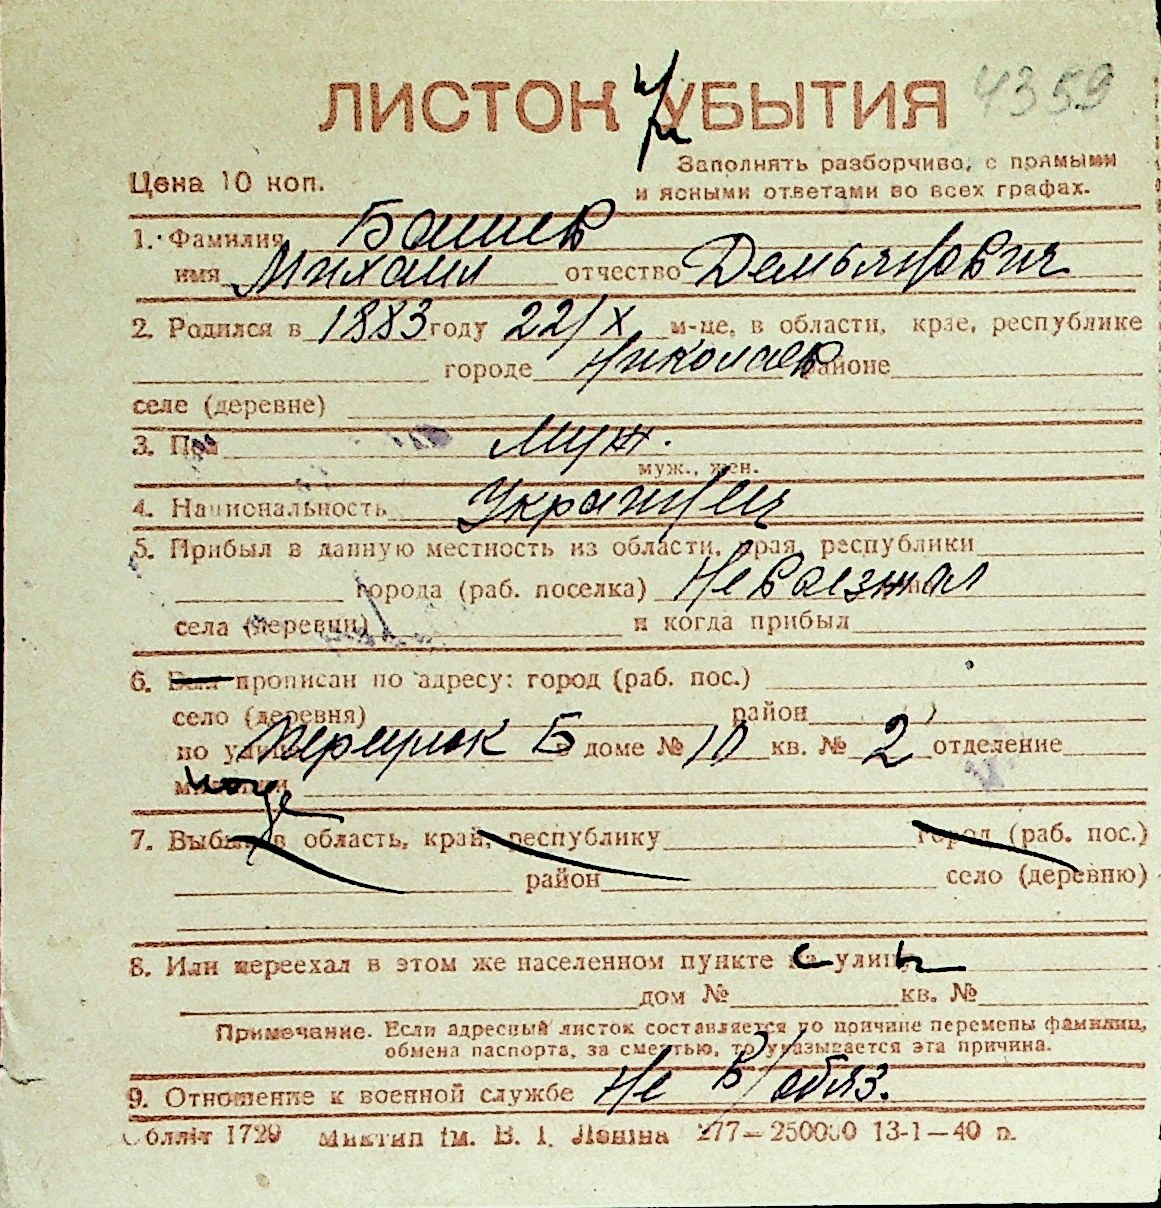 ЛИСТОК УБЫТИЯ 4359
при
Цена 10 коп.
Заполнять разборчиво, с прямыми
и ясными ответами во всех графах.
1. Фамилия Башев
имя Михаил отчество Демьянович
2. Родился в 1883 году 22/X м-це, в области, крае, республике
городе Николаев районе
селе (деревне)
3. Пол Муж.
муж., жен.
4. Национальность Украинец
5. Прибыл в данную местность из области, края, республики
города (раб. поселка) Не выезжал
села (деревни) и когда прибыл
6. Был прописан по адресу: город (раб. пос.)
село (деревня) район
по улице Б доме № 10 кв. № 2 отделение
милиции
7. Выбыл в область, край, республику город (раб. пос.)
район село (деревню)
8. Или переехал в этом же населенном пункте на улицу
дом № кв. №
Примечание. Если адресный листок составляется по причине перемены фамилии,
обмена паспорта, за смертью, то указывается эта причина.
9. Отношение к военной службе Не в/обяз.
Облліт 1729 Миктип ім. В. І. Леніна 277—250000 13-1—40 р.